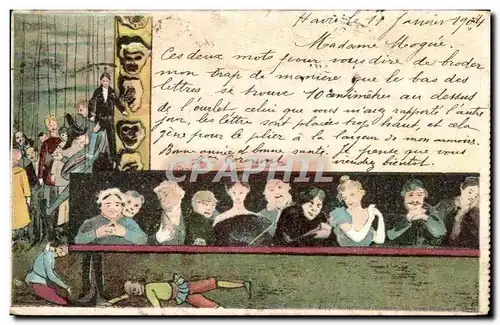 Havre le 11 Janvier 1904
Madame Moquée.
Ces deux mots pour vous dire de broder
mon drap de manière que le bas des
lettres se trouve 10 centimètres au dessus
de l'ourlet celui que vous m'avez rapporté l'autre
jour, les lettres sont placées trop haut, et cela
gêne pour le plier à la largeur de mon armoire.
Bonne année et bonne santé. Je pense que vous
viendrez bientôt.
CPARAMA.COM